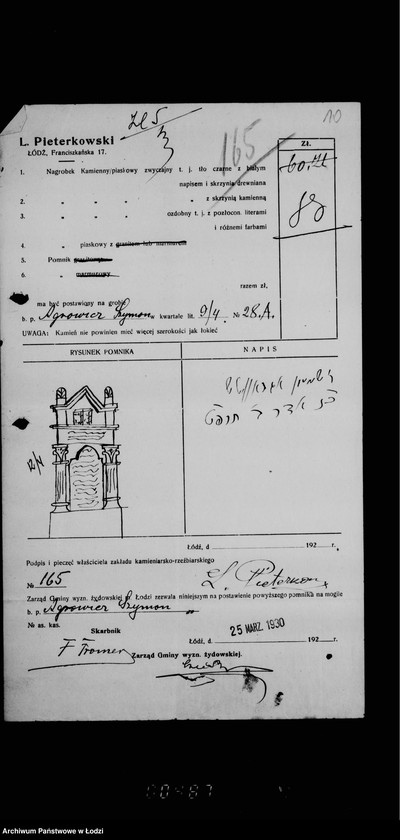 zł 5
10
165
L. Pieterkowski
ŁÓDŹ, Franciszkańska 17.
ZŁ.
1. Nagrobek Kamienny/piaskowy zwyczajny t. j. tło czarne z białym
napisem i skrzynia drewniana
60.- zł
2. " " " " z skrzynią kamienną
3. " " " ozdobny t. j. z pozłocon. literami
i różnemi farbami
4. " piaskowy z granitem lub marmurem
5. Pomnik granitowy
6. " marmurowy
razem zł.
ma być postawiony na grobie
b. p. Agrowicz Szymon w kwartale lit. 9/4. № 28. A.
UWAGA: Kamień nie powinien mieć więcej szerokości jak łokieć
RYSUNEK POMNIKA
NAPIS
Łódź, d 192 r.
Podpis i pieczęć właściciela zakładu kamieniarsko-rzeźbiarskiego
№ 165
L. Pieterkow
Zarząd Gminy wyzn. żydowskiej w Łodzi zezwala niniejszym na postawienie powyższego pomnika na mogile
b. p. Agrowicz Szymon
№ as. kas.
Skarbnik
Łódź, d. 25 MARZ. 1930 192 r.
F Fromer
Zarząd Gminy wyzn. żydowskiej.
00487
Archiwum Państwowe w Łodzi